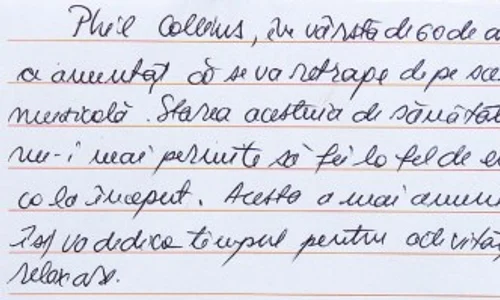 Phil Collins, în vârstă de 60 de a
a anunțat că se va retrage de pe sce
muzicală. Starea acestuia de sănătat
nu-i mai permite să fie la fel de e
ca la început. Acesta a mai anun
își va dedica timpul pentru activităț
relaxare.